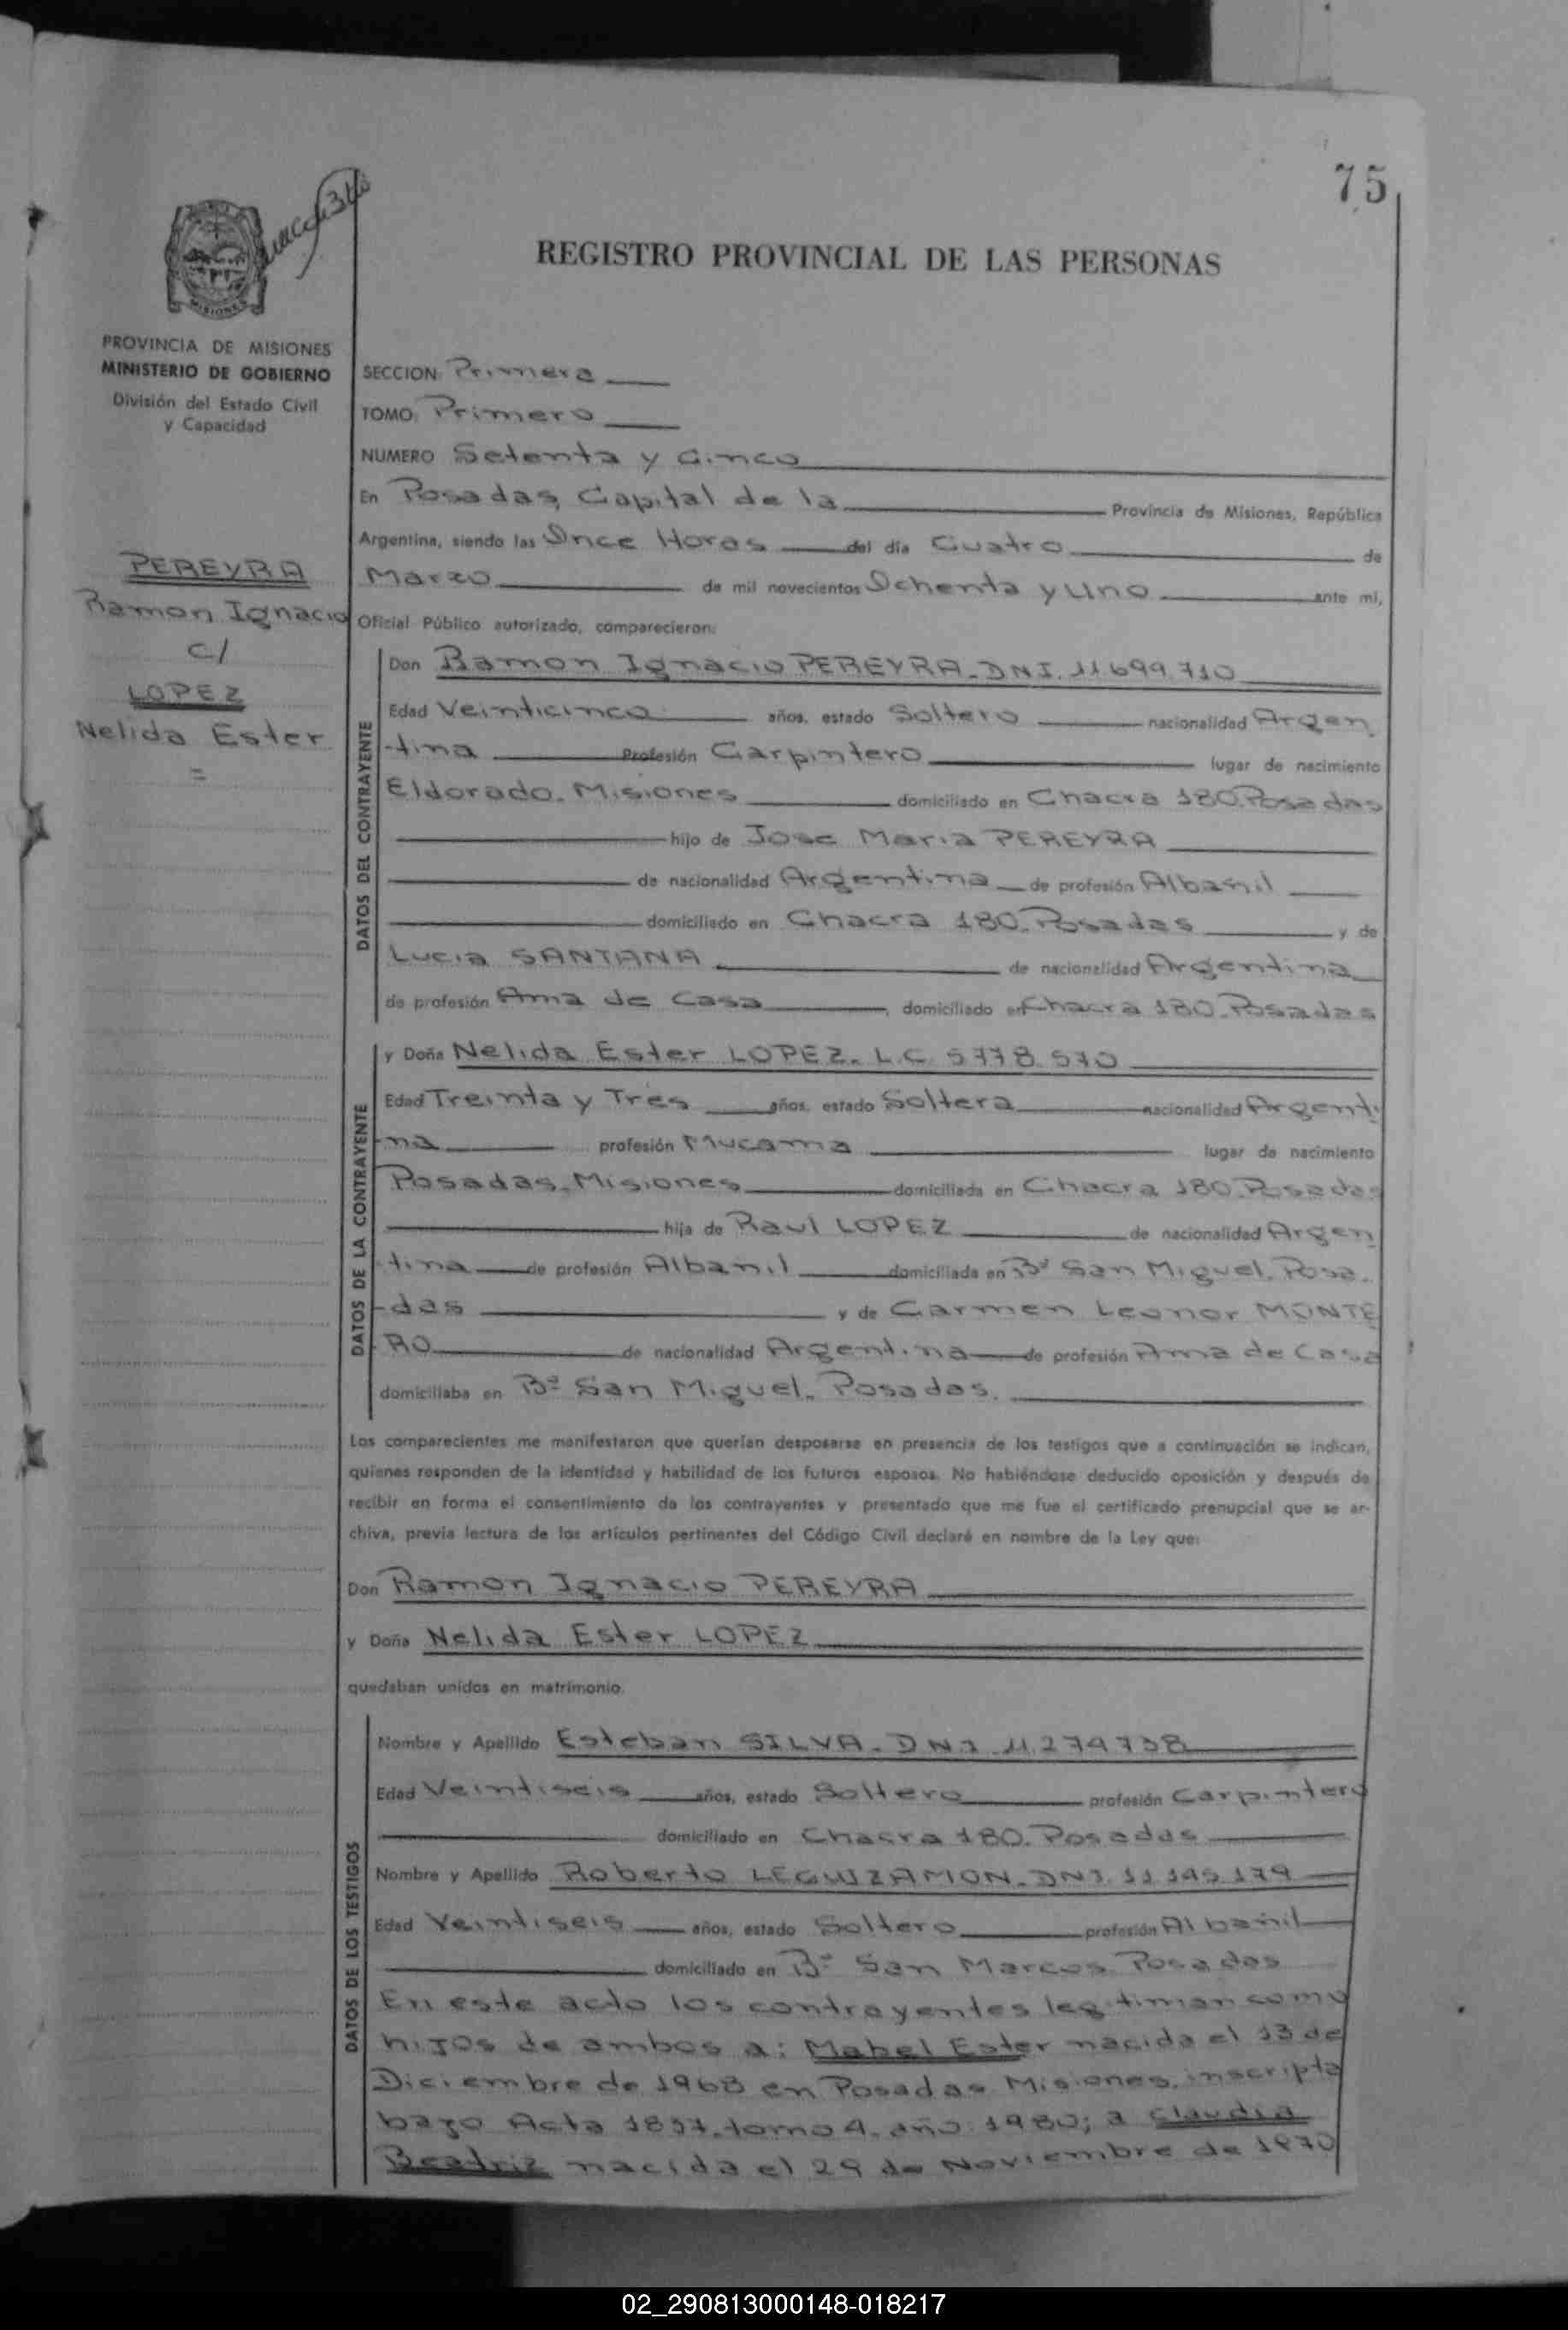 75
REGISTRO PROVINCIAL DE LAS PERSONAS
MISIONES
PROVINCIA DE MISIONES
MINISTERIO DE GOBIERNO
División del Estado Civil
y Capacidad
PEREYRA
Ramon Ignacio
c/
LOPEZ
Nelida Ester
=
SECCION: Primera
TOMO: Primero
NUMERO Setenta y Cinco
En Posadas, Capital de la Provincia de Misiones, República
Argentina, siendo las Once Horas del día Cuatro de
Marzo de mil novecientos Ochenta y Uno ante mí,
Oficial Público autorizado, comparecieron:
DATOS DEL CONTRAYENTE
Don Ramon Ignacio PEREYRA - DNI. 11.699.710
Edad Veinticinco años, estado Soltero nacionalidad Argen
-tina Profesión Carpintero lugar de nacimiento
Eldorado. Misiones domiciliado en Chacra 180. Posadas
hijo de Jose Maria PEREYRA
de nacionalidad Argentina de profesión Albañil
domiciliado en Chacra 180. Posadas y de
Lucia SANTANA de nacionalidad Argentina
de profesión Ama de Casa, domiciliado en Chacra 180. Posadas
DATOS DE LA CONTRAYENTE
y Doña Nelida Ester LOPEZ. L.C. 5.778.570
Edad Treinta y Tres años, estado Soltera nacionalidad Argenti
-na profesión Mucama lugar de nacimiento
Posadas. Misiones domiciliada en Chacra 180. Posadas
hija de Raul LOPEZ de nacionalidad Argen
-tina de profesión Albanil domiciliada en Bº San Miguel. Posa
-das y de Carmen Leonor MONTE
-RO de nacionalidad Argentina de profesión Ama de Casa
domiciliaba en Bº San Miguel. Posadas.
Los comparecientes me manifestaron que querían desposarse en presencia de los testigos que a continuación se indican,
quienes responden de la identidad y habilidad de los futuros esposos. No habiéndose deducido oposición y después de
recibir en forma el consentimiento de los contrayentes y presentado que me fue el certificado prenupcial que se ar-
chiva, previa lectura de los artículos pertinentes del Código Civil declaré en nombre de la Ley que:
Don Ramon Ignacio PEREYRA
y Doña Nelida Ester LOPEZ
quedaban unidos en matrimonio.
DATOS DE LOS TESTIGOS
Nombre y Apellido Esteban SILVA - DNI. 11.274738
Edad Veintiseis años, estado Soltero profesión Carpintero
domiciliado en Chacra 180. Posadas
Nombre y Apellido Roberto LEGUIZAMON - DNI. 11.145.179
Edad Veintiseis años, estado Soltero profesión Albañil
domiciliado en Bº San Marcos. Posadas
En este acto los contrayentes legitiman como
hijos de ambos a: Mabel Ester nacida el 13 de
Diciembre de 1968 en Posadas Misiones, inscripta
bajo Acta 1857. tomo 4. año 1980; a Claudia
Beatriz nacida el 29 de Noviembre de 1970
02_290813000148-018217